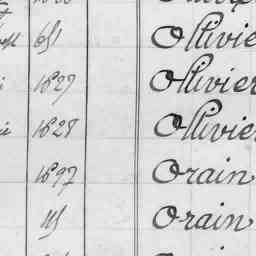 651 Ollivie
1827 Ollivier
1828 Ollivier
1897 Orain
115 Orain